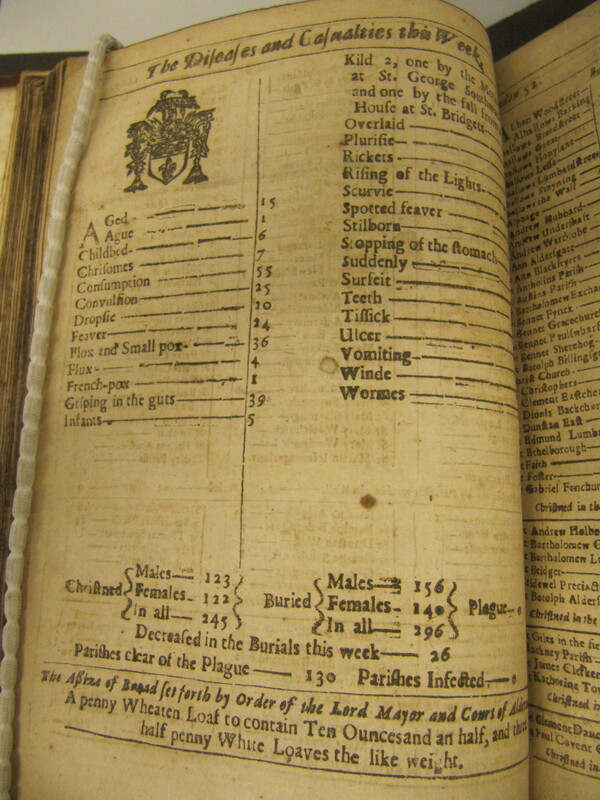 The Diſeaſes and Caſualties this Week,
AGed 15
Ague 1
Childbed 6
Chriſomes 7
Conſumption 55
Convulſion 25
Dropſie 20
Feaver 24
Flox and Small pox 36
Flux 4
French-pox 1
Griping in the guts 39
Infants 5
Kild 2, one by the
at St. George
and one by the fall from
Houſe at St. Bridgets
Overlaid
Pluriſie
Rickets
Riſing of the Lights
Scurvie
Spotted feaver
Stilborn
Stopping of the ſtomach
Suddenly
Surfeit
Teeth
Tiſſick
Ulcer
Vomiting
Winde
Wormes
Chriſtned
Males 123
Females 122
In all 245
Buried
Males 156
Females 140
In all 296
Plague 0
Decreaſed in the Burials this week 26
Pariſhes clear of the Plague 130 Pariſhes Infected 0
The Aſsize of Bread ſet forth by Order of the Lord Mayor and Court of
A penny Wheaten Loaf to contain Ten Ounces and an half, and three
half penny White Loaves the like weight.
52.
Andrew Hubbard
Andrew Underſhaft
Andrew Wardrobe
Ann Alderſgate
Ann Blackfryers
Auſtins Pariſh
Bennet Fynck
Bennet Gracechurch
Bennet Sherehog
Botolph Billingſg
Chriſtophers
Clement Eaſtcheap
Dionis Backchurch
Dunſtan Eaſt
Edmund Lumb
Ethelborough
Faith
Foſter
Gabriel Fenchur
Chriſtned in the
Andrew Holbo
Bartholomew G
Bartholomew L
Bridget
Bridewel Precinct
Botolph Alderſ
Chriſtned in the
Giles in the fie
Hackney Pariſh
James Clerken
Katharine Tow
Chriſtned in
Clement Dane
Paul Covent G
Chriſtned in